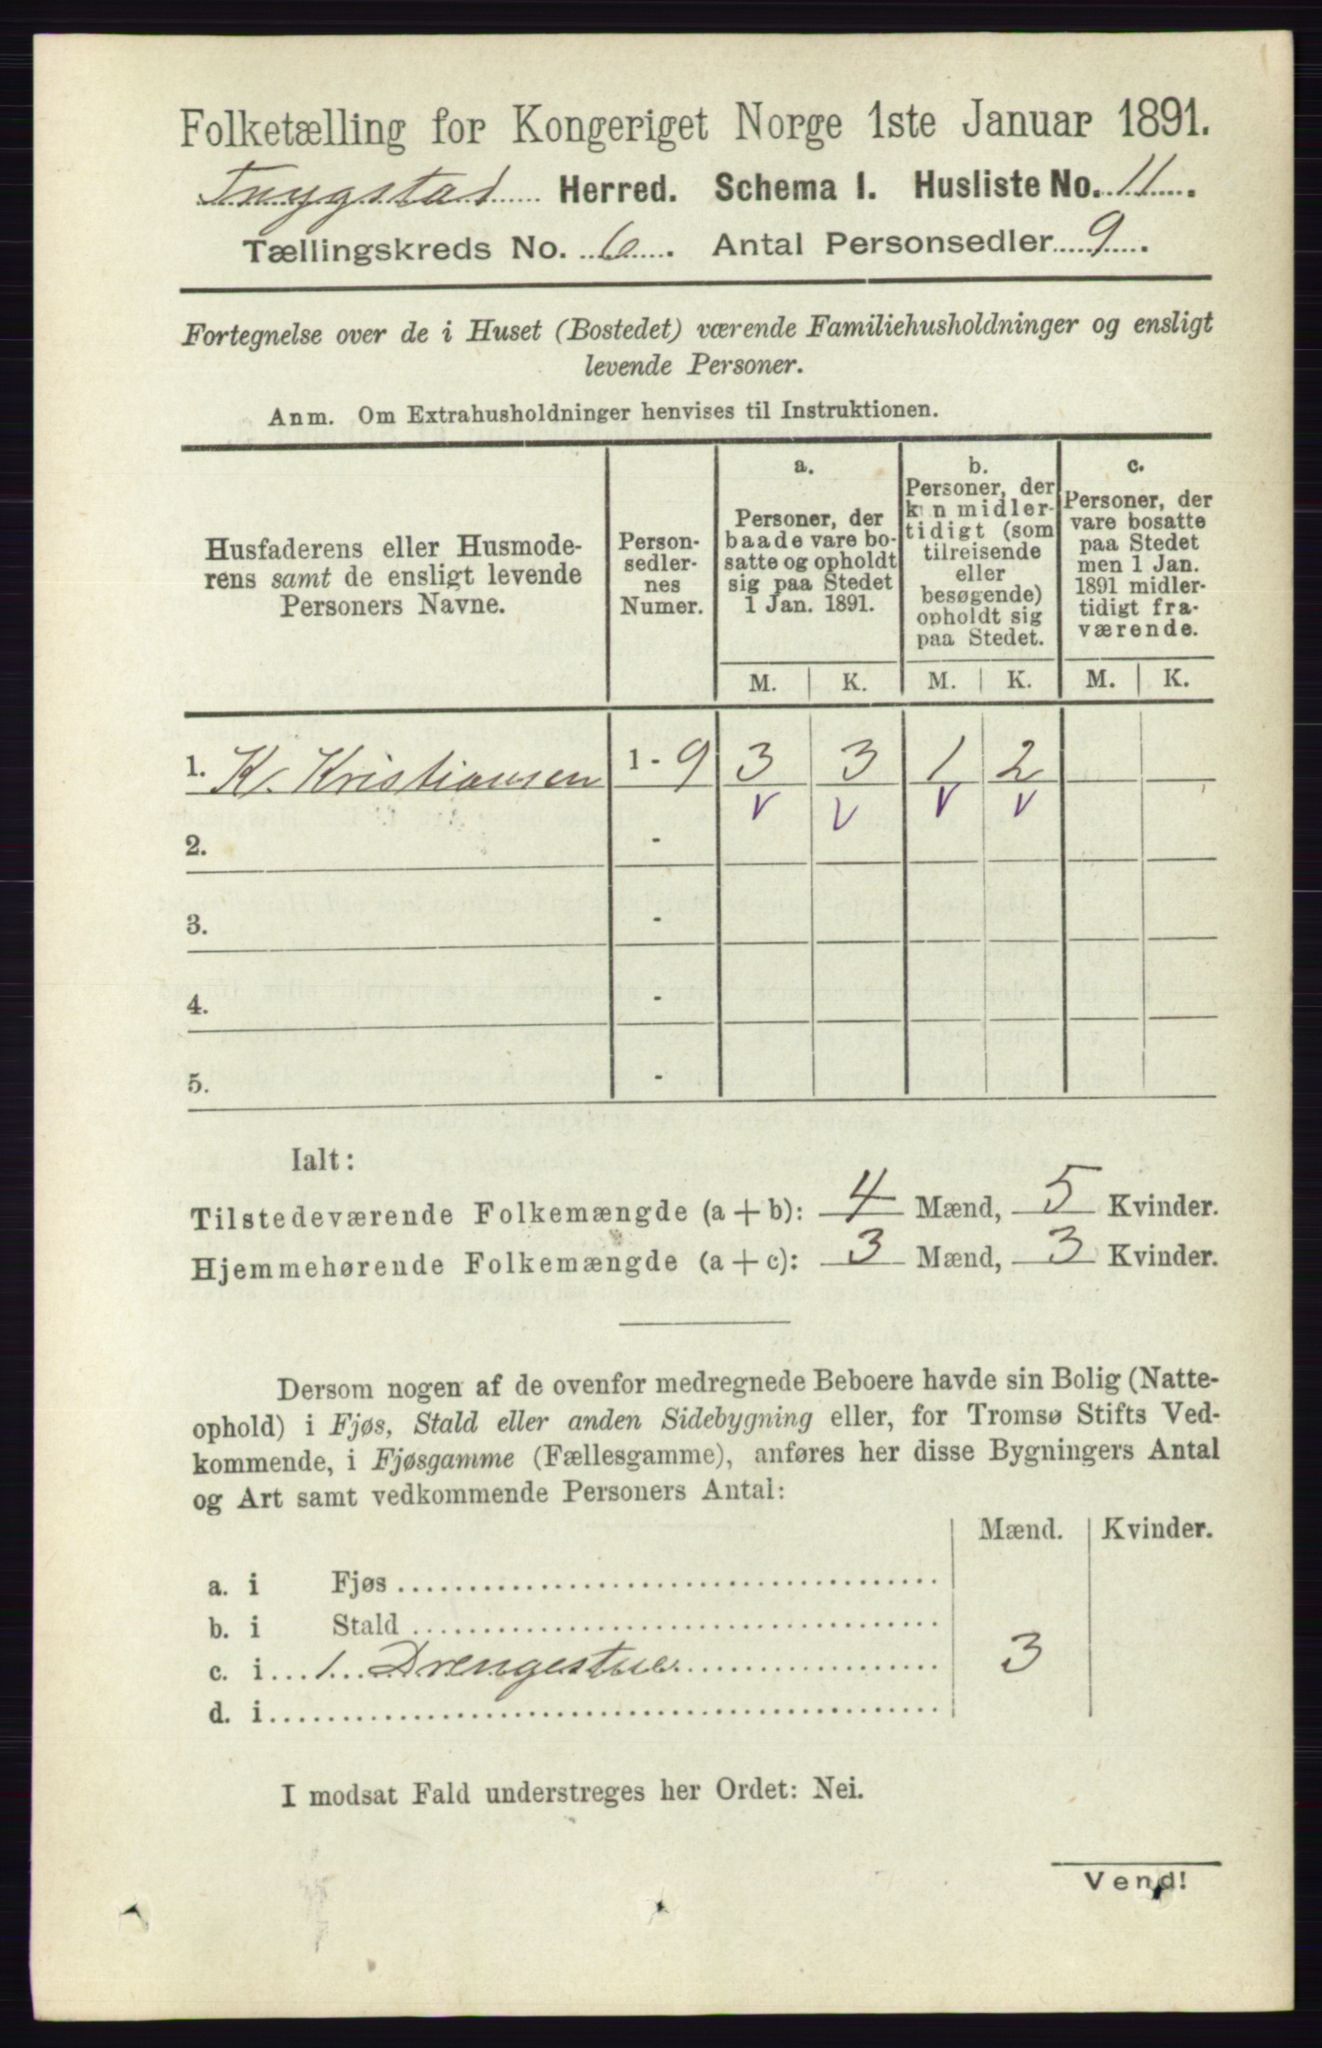 Folketælling for Kongeriget Norge 1ste Januar 1891.
Trygstad Herred. Schema I. Husliste No. 11.
Tællingskreds No. 6. Antal Personsedler 9.
Fortegnelse over de i Huset (Bostedet) værende Familiehusholdninger og ensligt
levende Personer.
Anm. Om Extrahusholdninger henvises til Instruktionen.
Husfaderens eller Husmode-
rens samt de ensligt levende
Personers Navne.
Person-
sedler-
nes
Numer.
a.
Personer, der
baade vare bo-
satte og opholdt
sig paa Stedet
1 Jan. 1891.
b.
Personer, der
kun midler-
tidigt (som
tilreisende
eller
besøgende)
opholdt sig
paa Stedet.
c.
Personer, der
vare bosatte
paa Stedet
men 1 Jan.
1891 midler-
tidigt fra-
værende.
M. K. M. K. M. K.
1. Kr. Kristiansen 1 - 9 3 3 1 2
v v v v
2. -
3. -
4. -
5. -
Ialt:
Tilstedeværende Folkemængde (a + b): 4 Mænd, 5 Kvinder.
Hjemmehørende Folkemængde (a + c): 3 Mænd, 3 Kvinder.
Dersom nogen af de ovenfor medregnede Beboere havde sin Bolig (Natte-
ophold) i Fjøs, Stald eller anden Sidebygning eller, for Tromsø Stifts Ved-
kommende, i Fjøsgamme (Fællesgamme), anføres her disse Bygningers Antal
og Art samt vedkommende Personers Antal:
Mænd. Kvinder.
a. i Fjøs
b. i Stald
c. i 1 Drengestue 3
d. i
I modsat Fald understreges her Ordet: Nei.
Vend!